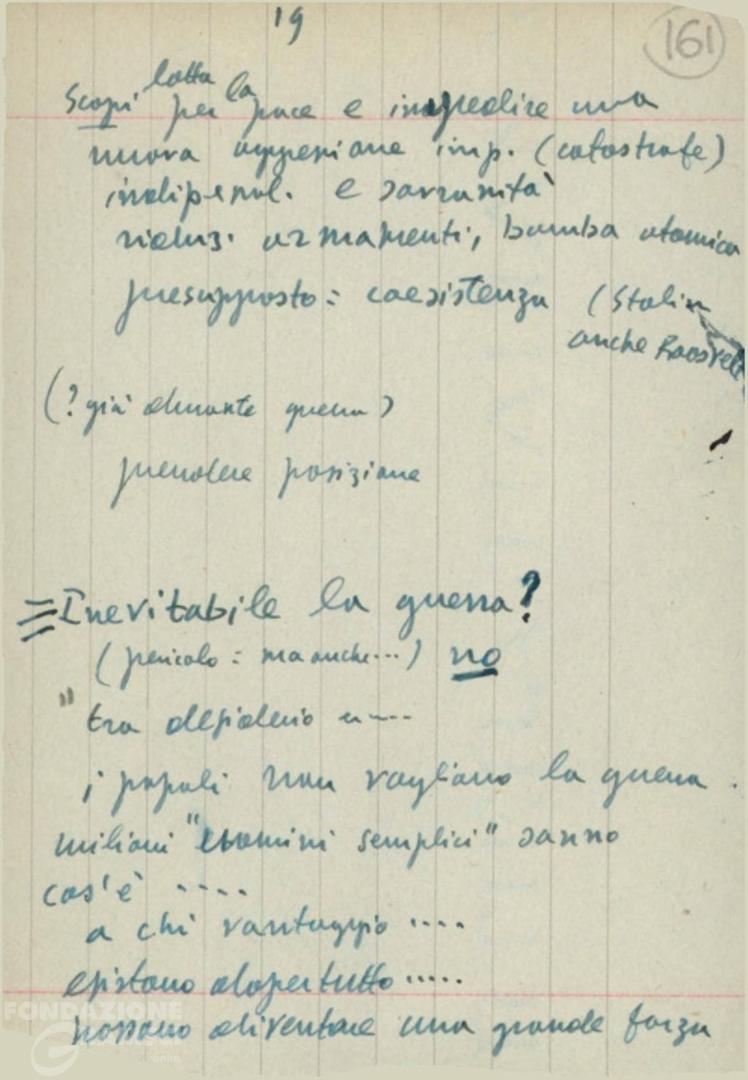 19
161
Scopi lotta per la pace e impedire una
nuova aggressione imp. (catastrofe)
indipend. e sovranità
riduz. armamenti, bomba atomica
presupposto: coesistenza (Stalin
anche Roosvelt
(? già durante guerra)
prendere posizione
Inevitabile la guerra?
(pericolo: ma anche...) no
" tra desiderio e ....
i popoli non vogliono la guerra.
milioni "uomini semplici" sanno
cos'è ....
a chi vantaggio ....
esistono dapertutto .....
possono diventare una grande forza
FONDAZIONE